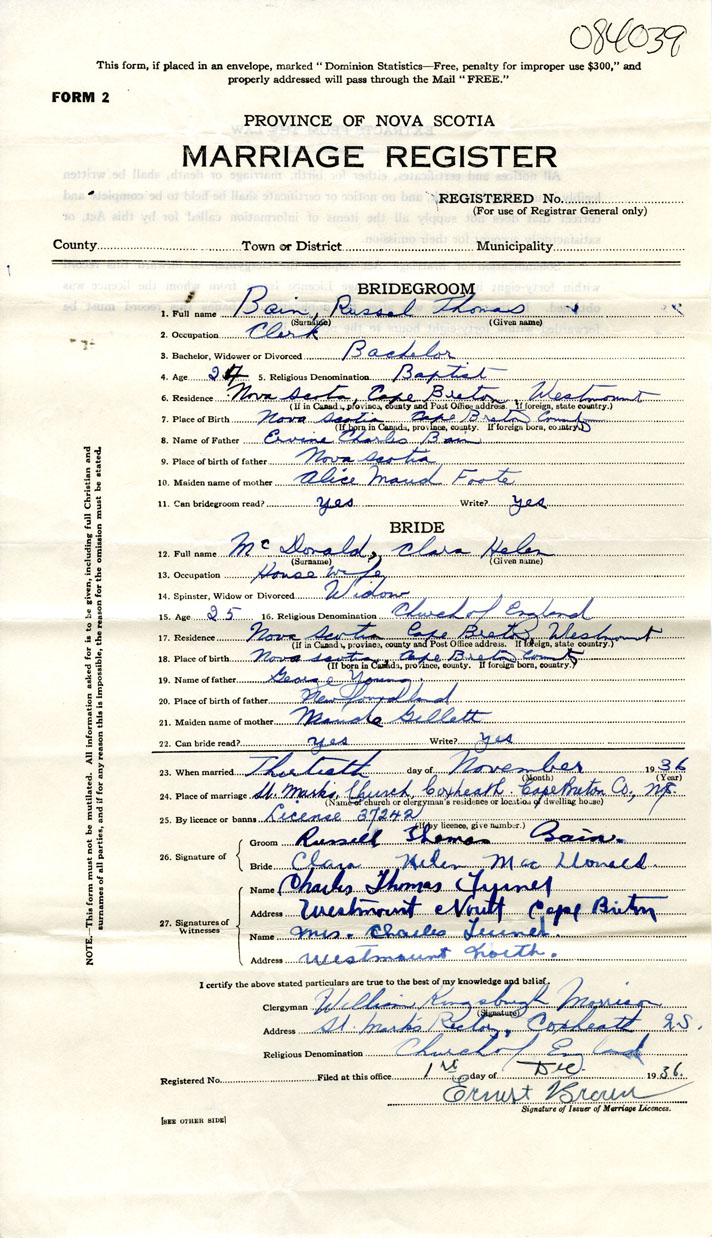 084039
This form, if placed in an envelope, marked " Dominion Statistics—Free, penalty for improper use $300," and
properly addressed will pass through the Mail " FREE."
FORM 2
PROVINCE OF NOVA SCOTIA
MARRIAGE REGISTER
REGISTERED No.
(For use of Registrar General only)
County Town or District Municipality
BRIDEGROOM
1. Full name Bain, Russel Thomas
(Surname) (Given name)
2. Occupation Clerk
3. Bachelor, Widower or Divorced Bachelor
4. Age 27 5. Religious Denomination Baptist
6. Residence Nova Scota, Cape Breton, Westmount
(If in Canada, province, county and Post Office address. If foreign, state country.)
7. Place of Birth Nova Scotia Cape Breton County
(If born in Canada, province, county. If foreign born, country.)
8. Name of Father Ervine Charles Bain
9. Place of birth of father Nova Scotia
10. Maiden name of mother Alice Maud Foote
11. Can bridegroom read? yes Write? yes
BRIDE
12. Full name McDonald, Clara Helen
(Surname) (Given name)
13. Occupation House wife
14. Spinster, Widow or Divorced Widow
15. Age 25 16. Religious Denomination Church of England
17. Residence Nova Scotia Cape Breton, Westmount
(If in Canada, province, county and Post Office address. If foreign, state country.)
18. Place of birth Nova Scotia, Cape Breton County
(If born in Canada, province, county. If foreign born, country.)
19. Name of father George Young
20. Place of birth of father Newfoundland
21. Maiden name of mother Maude Gellett
22. Can bride read? yes Write? yes
23. When married Thirtieth day of November 1936
(Month) (Year)
24. Place of marriage St. Mark's Church, Coxheath. Cape Breton Co., N.S.
(Name of church or clergyman's residence or location of dwelling house)
25. By licence or banns License 37242
(If by licence, give number.)
26. Signature of
Groom Russell Thomas Bain.
Bride Clara Helen MacDonald
27. Signatures of Witnesses
Name Charles Thomas
Address Westmount North Cape Breton
Name Mrs. Charles
Address Westmount North.
I certify the above stated particulars are true to the best of my knowledge and belief.
Clergyman William Kingsburgh Morrison
(Signature)
Address St. Mark's Rectory, Coxheath N.S.
Religious Denomination Church of England
Registered No. Filed at this office 1st day of Dec. 1936.
Ernest Brown
Signature of Issuer of Marriage Licences.
[SEE OTHER SIDE]
NOTE.—This form must not be mutilated. All information asked for is to be given, including full Christian and
surnames of all parties, and if for any reason this is impossible, the reason for the omission must be stated.